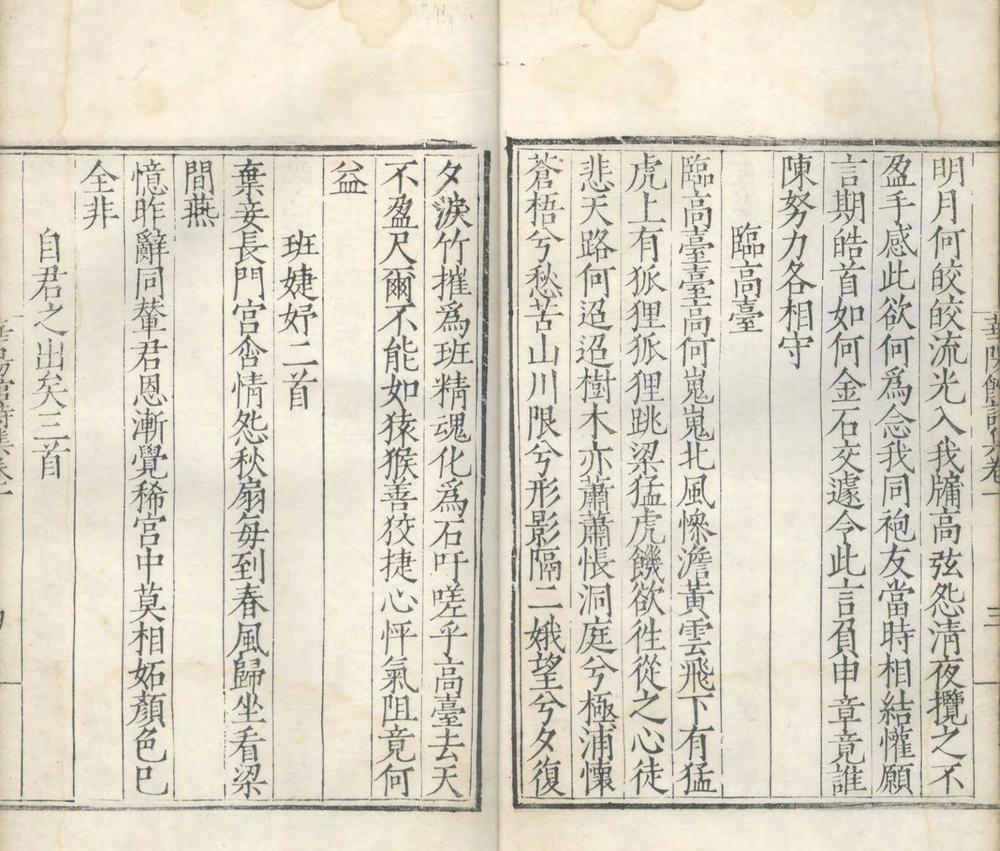 明月何皎皎流光入我牖高弦怨清夜攬之不
盈手感此欲何爲念我同袍友當時相結懽願
言期皓首如何金石交遽令此言負申章竟誰
陳努力各相守
臨高臺
臨高臺臺高何嵬嵬北風慘澹黃雲飛下有猛
虎上有狐狸狐狸跳梁猛虎饑欲徃從之心徒
悲天路何迢迢樹木亦蕭蕭悵洞庭兮極浦懷
蒼梧兮愁苦山川限兮形影隔二娥望兮夕復
夕淚竹摧爲班精魂化爲石吁嗟乎高臺去天
不盈尺爾不能如猿猴善狡捷心怦氣阻竟何
益
班婕妤二首
棄妾長門宮含情怨秋扇每到春風歸坐看梁
間燕
憶昨辭同輦君恩漸覺稀宮中莫相妬顏色已
全非
自君之出矣三首